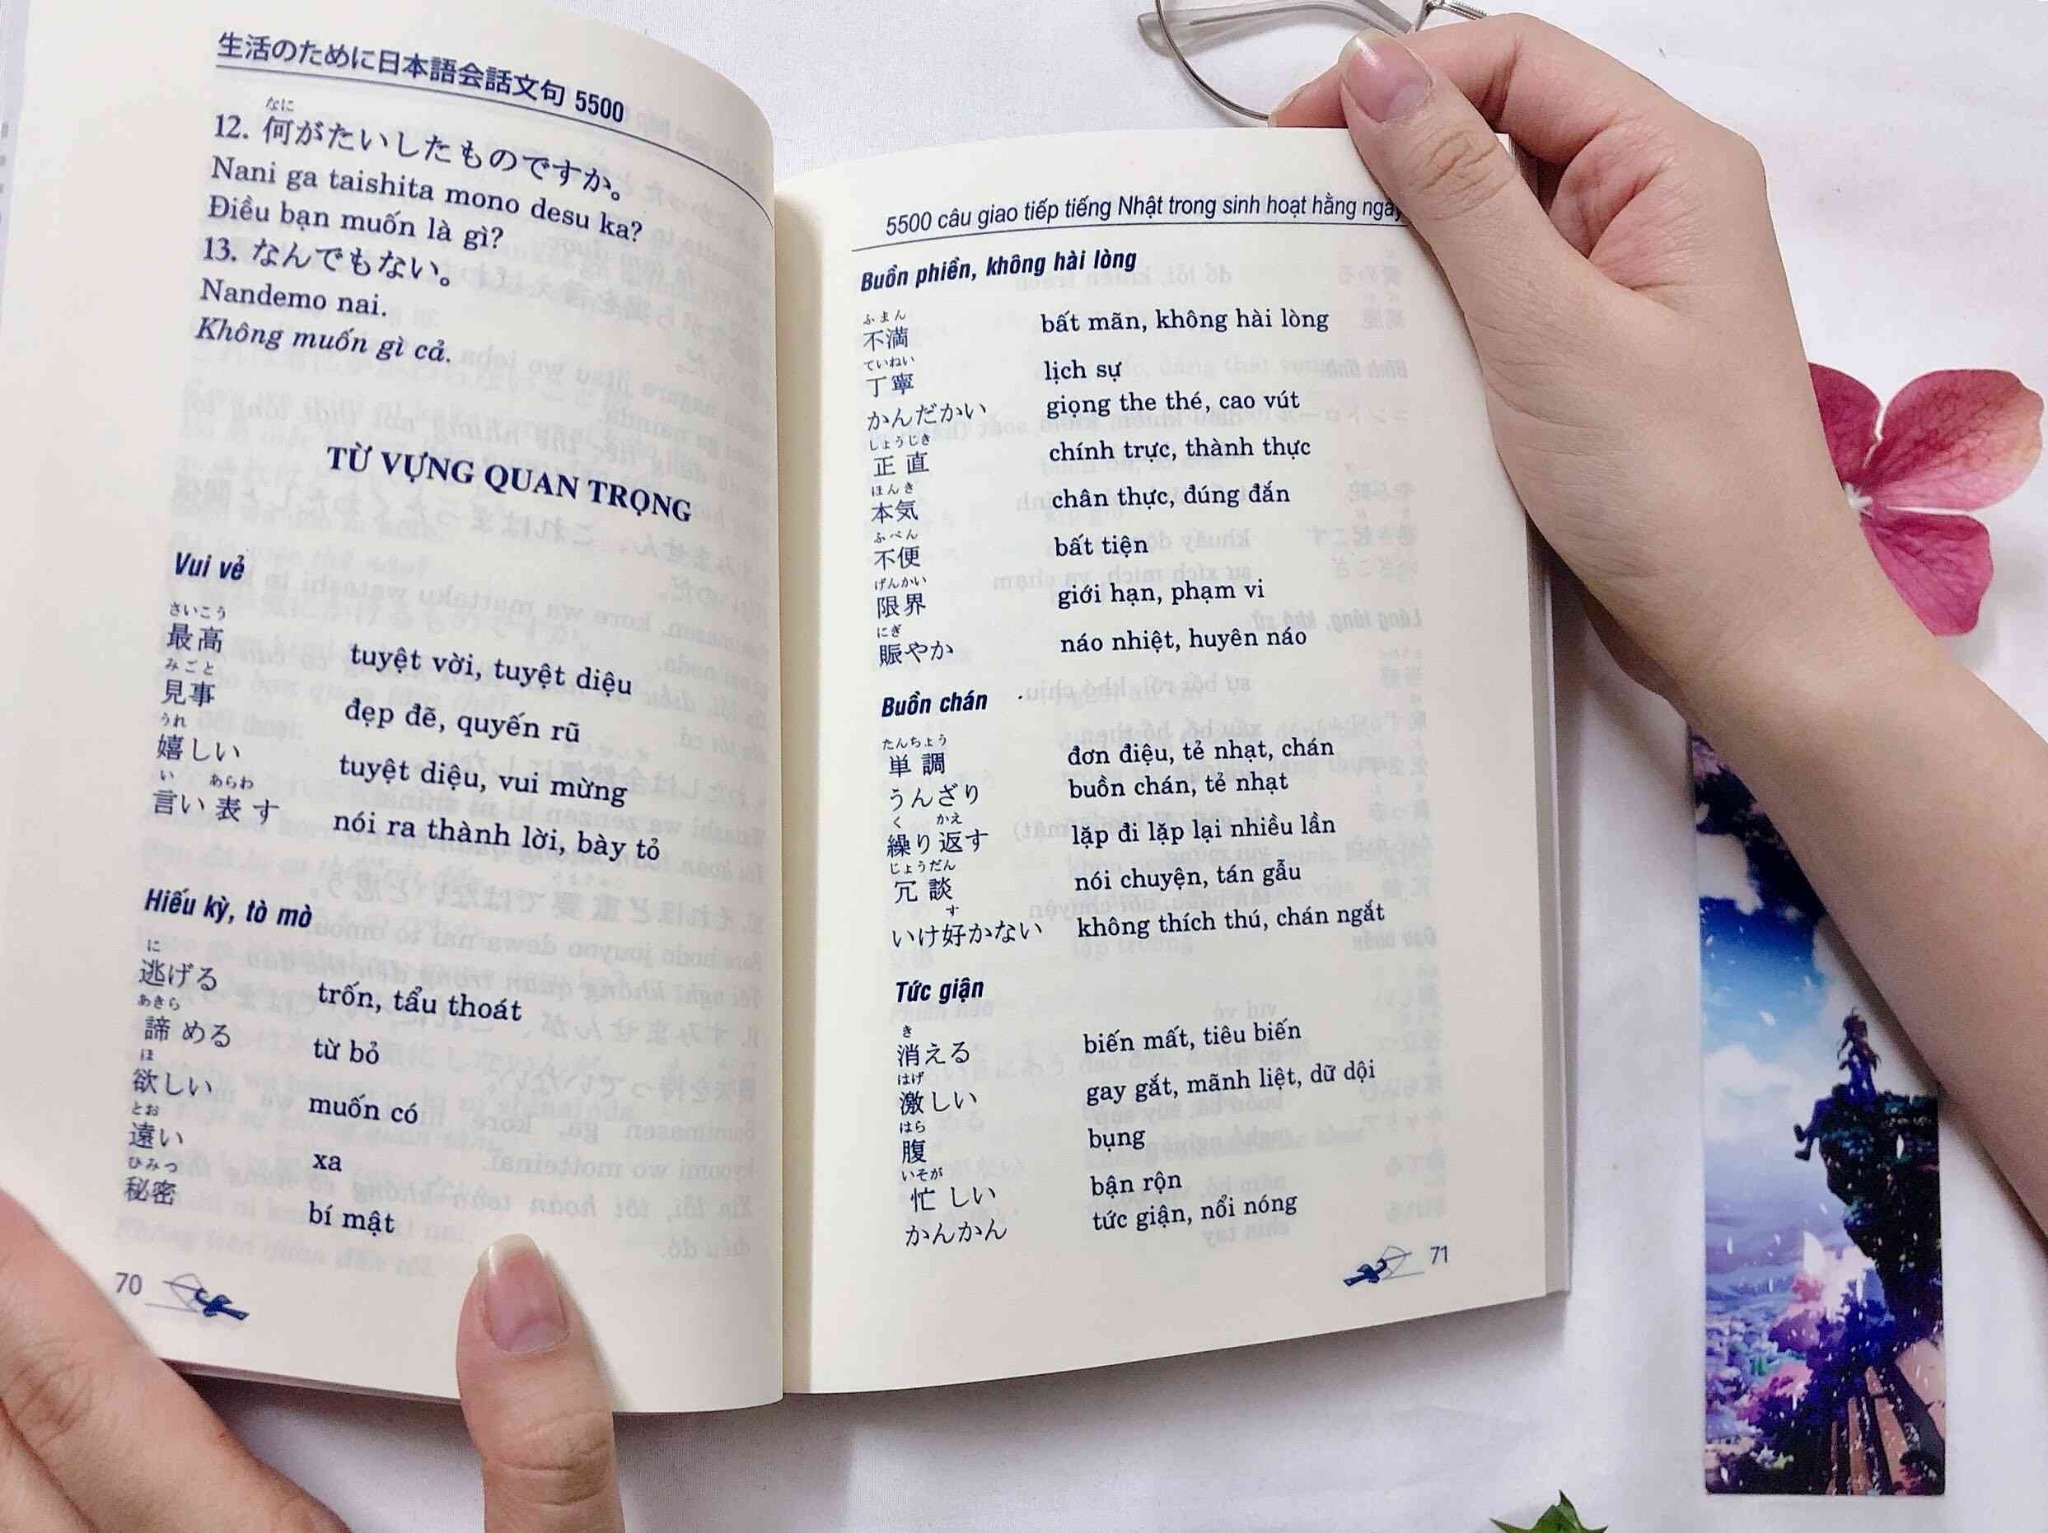 生活のために日本語会話文句 5500
なに
12. 何がたいしたものですか。
Nani ga taishita mono desu ka?
Điều bạn muốn là gì?
13. なんでもない。
Nandemo nai.
Không muốn gì cả.
TỪ VỰNG QUAN TRỌNG
Vui vẻ
さいこう
最高 tuyệt vời, tuyệt diệu
みごと
見事 đẹp đẽ, quyến rũ
うれ
嬉しい tuyệt diệu, vui mừng
い あらわ
言い表す nói ra thành lời, bày tỏ
Hiếu kỳ, tò mò
に
逃げる trốn, tẩu thoát
あきら
諦める từ bỏ
ほ
欲しい muốn có
とお
遠い xa
ひみつ
秘密 bí mật
70
5500 câu giao tiếp tiếng Nhật trong sinh hoạt hằng ngày
Buồn phiền, không hài lòng
ふまん
不満 bất mãn, không hài lòng
ていねい
丁寧 lịch sự
かんだかい giọng the thé, cao vút
しょうじき
正直 chính trực, thành thực
ほんき
本気 chân thực, đúng đắn
ふべん
不便 bất tiện
げんかい
限界 giới hạn, phạm vi
にぎ
賑やか náo nhiệt, huyên náo
Buồn chán
たんちょう
単調 đơn điệu, tẻ nhạt, chán
うんざり buồn chán, tẻ nhạt
く かえ
繰り返す lặp đi lặp lại nhiều lần
じょうだん
冗談 nói chuyện, tán gẫu
す
いけ好かない không thích thú, chán ngắt
Tức giận
き
消える biến mất, tiêu biến
はげ
激しい gay gắt, mãnh liệt, dữ dội
はら
腹 bụng
いそが
忙しい bận rộn
かんかん tức giận, nổi nóng
71